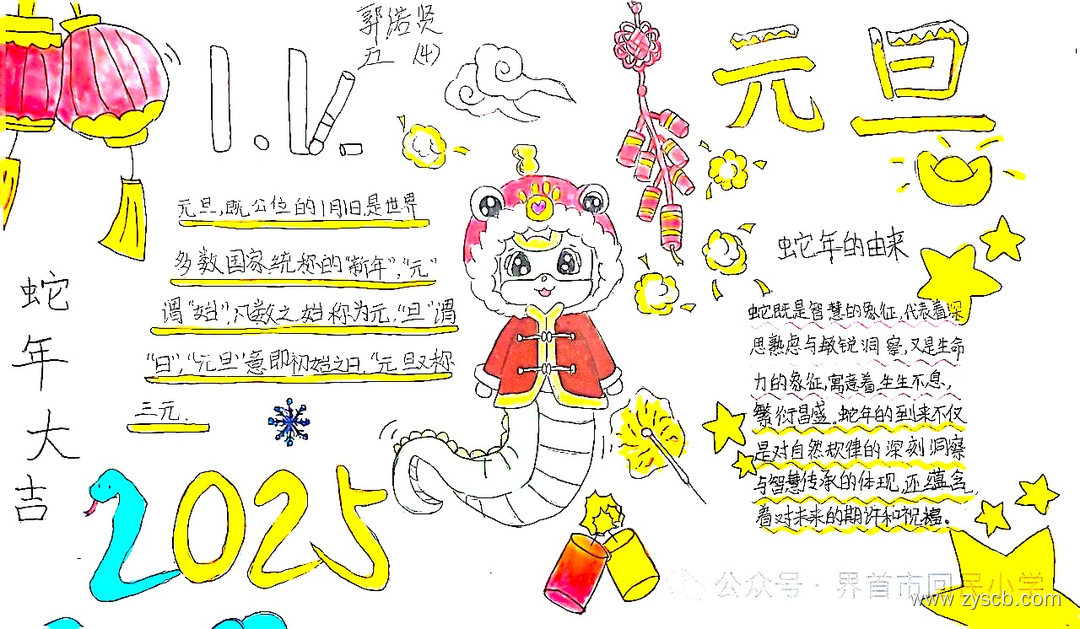 郭诺贤
五 (4)
1.1.
元旦
元旦,既公位的1月1日,是世界
多数国家统称的"新年","元"
谓"始",凡数之始称为元,"旦"谓
"日","元旦"意即初始之日,"元旦又称
三元.
蛇年大吉
2025
蛇年的由来
蛇既是智慧的象征,代表着深
思熟虑与敏锐洞察,又是生命
力的象征,寓意着生生不息,
繁衍昌盛。蛇年的到来不仅
是对自然规律的深刻洞察
与智慧传承的体现,还蕴含
着对未来的期许和祝福。
公众号·界首市回民小学
www.zyscb.com